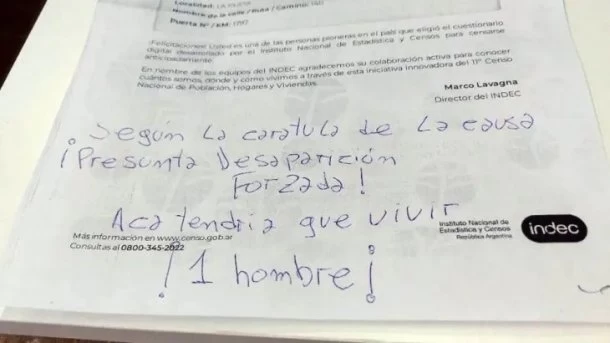 Localidad:
Nombre de la calle / Ruta / Camino:
Puerta N° / KM: 1797
¡Felicitaciones! Usted es una de las personas pioneras en el país que eligió el cuestionario
digital desarrollado por el Instituto Nacional de Estadística y Censos para censarse
anticipadamente.
En nombre de los equipos del INDEC agradecemos su colaboración activa para conocer
cuántos somos, dónde y cómo vivimos a través de esta iniciativa innovadora del 11° Censo
Nacional de Población, Hogares y Viviendas.
Marco Lavagna
Director del INDEC
Según La caratula de La causa
¡Presunta Desaparición
Forzada!
Aca tendria que vivir
Más información en www.censo.gob.ar
Consultas al 0800-345-2022
Instituto Nacional de
Estadística y Censos
República Argentina
indec
¡1 hombre!